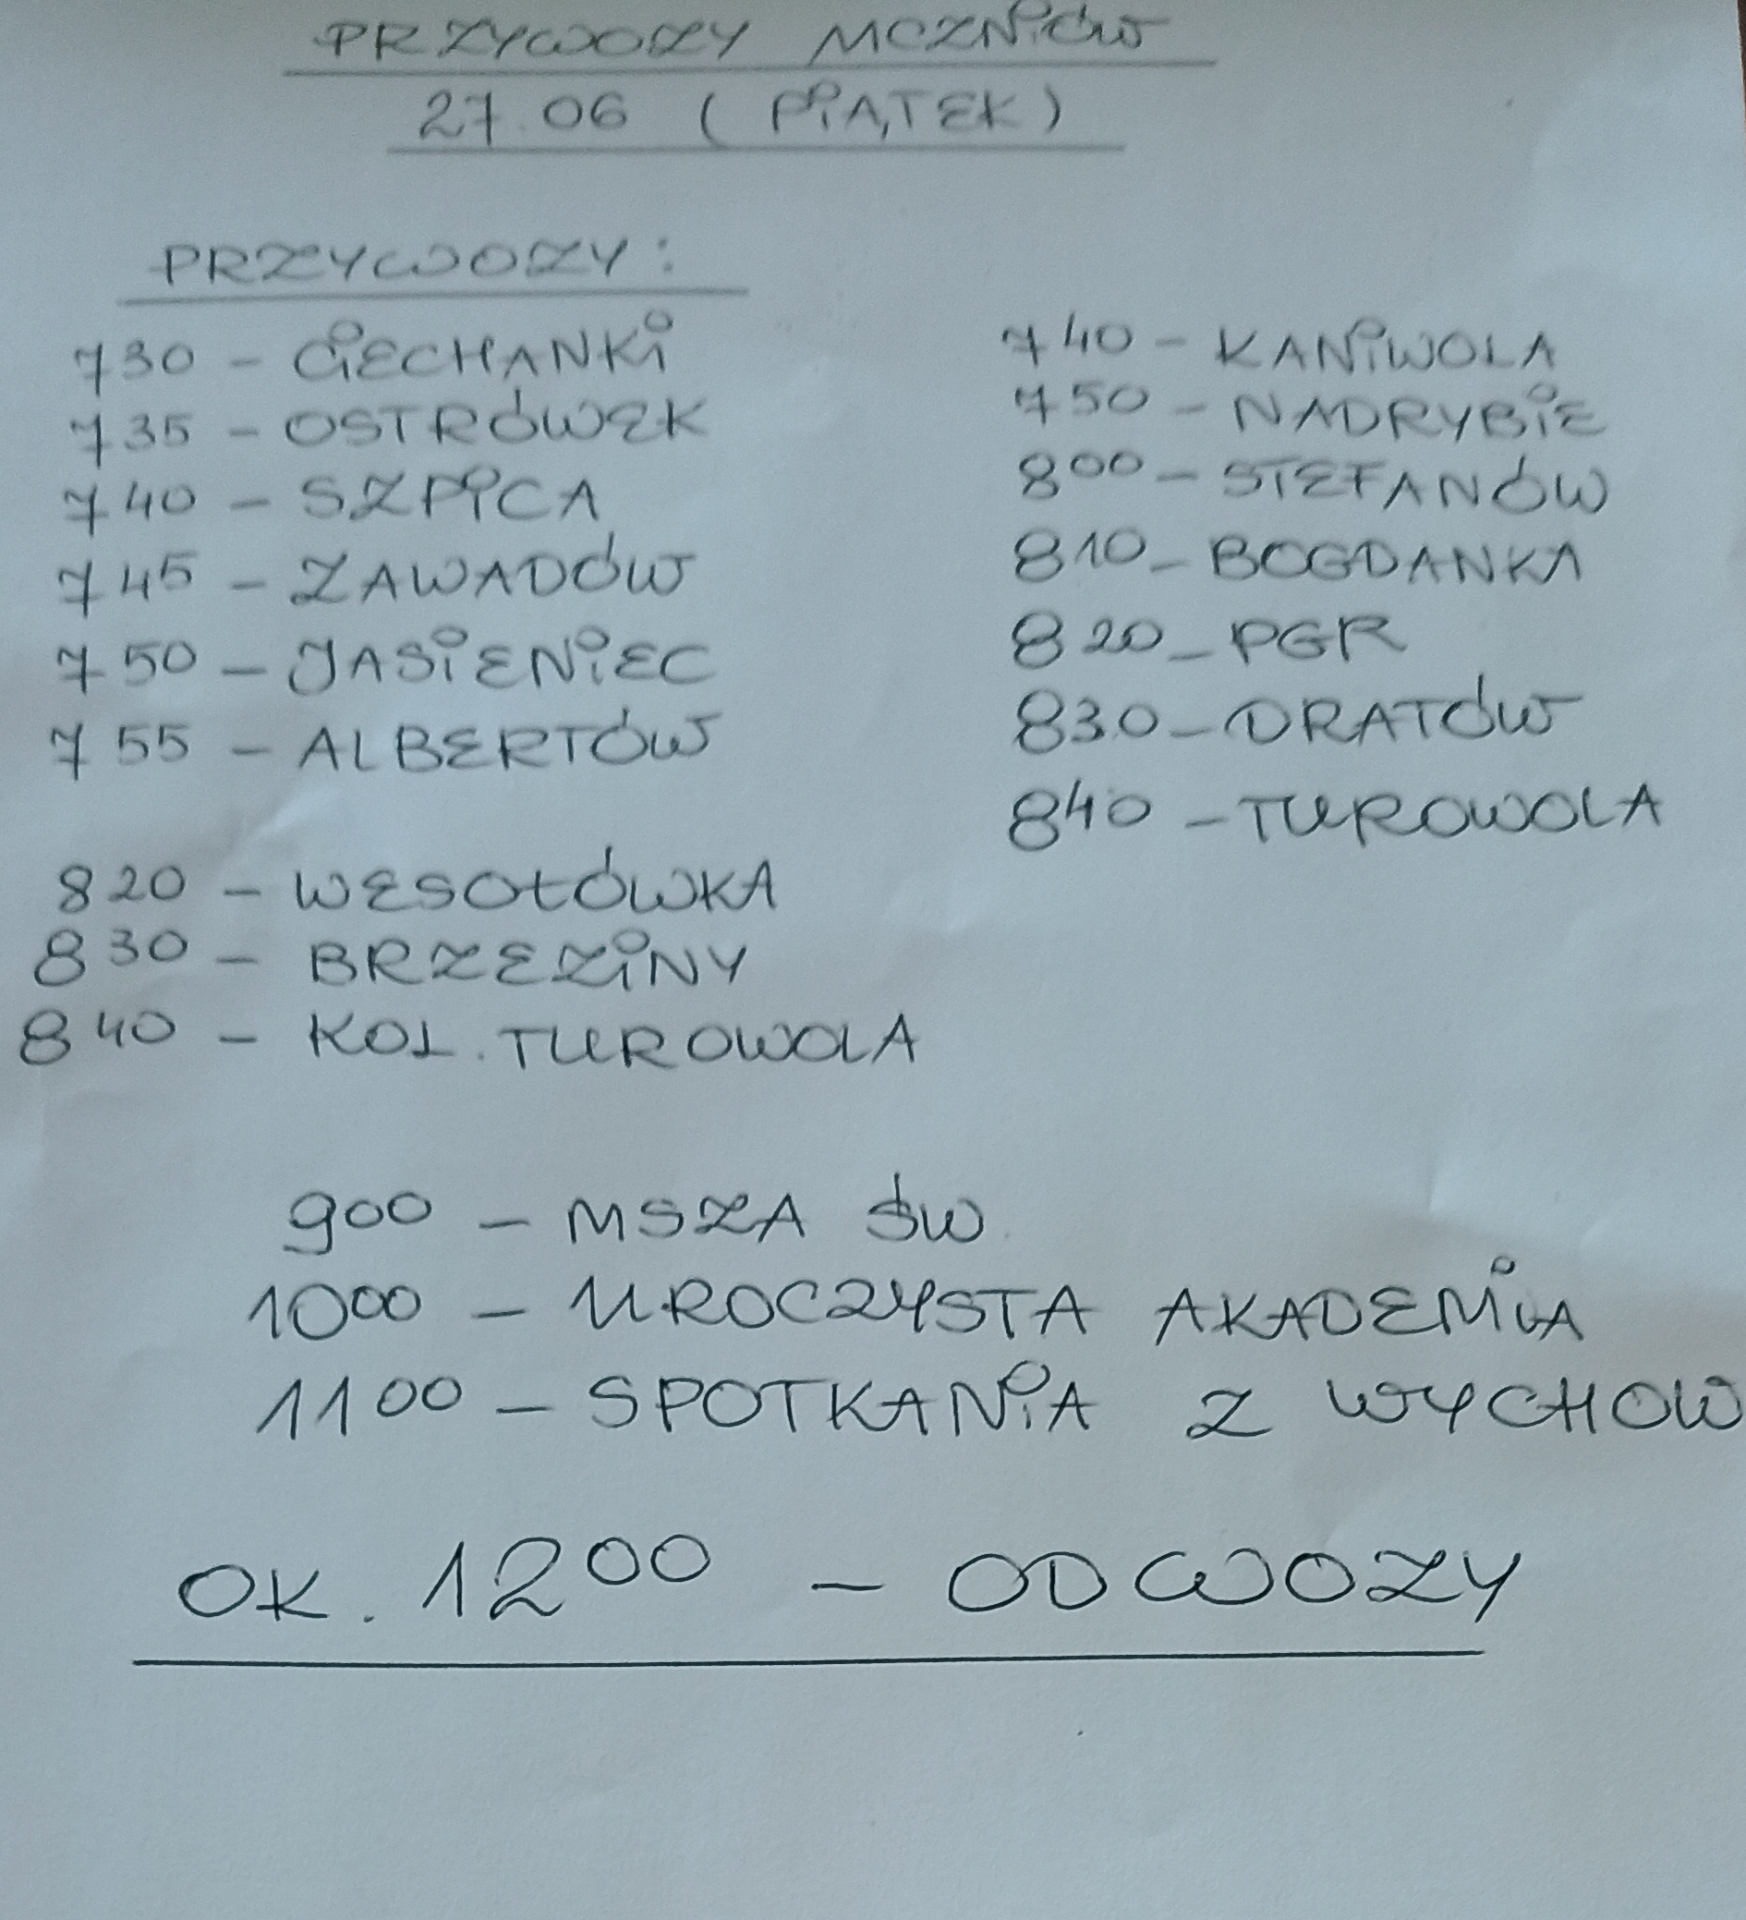 PRZYWOZY UCZNIÓW
27.06 (PIĄTEK)
PRZYWOZY:
730 - CIECHANKI
735 - OSTRÓWEK
740 - SZPICA
745 - ZAWADÓW
750 - JASIENIEC
755 - ALBERTÓW
820 - WESOŁÓWKA
830 - BRZEZINY
840 - KOL. TUROWOLA
740 - KANIWOLA
750 - NADRYBIE
800 - STEFANÓW
810 - BOGDANKA
820 - PGR
830 - DRATÓW
840 - TUROWOLA
900 - MSZA ŚW.
1000 - UROCZYSTA AKADEMIA
1100 - SPOTKANIA Z WYCHOW
OK. 1200 - ODWOZY